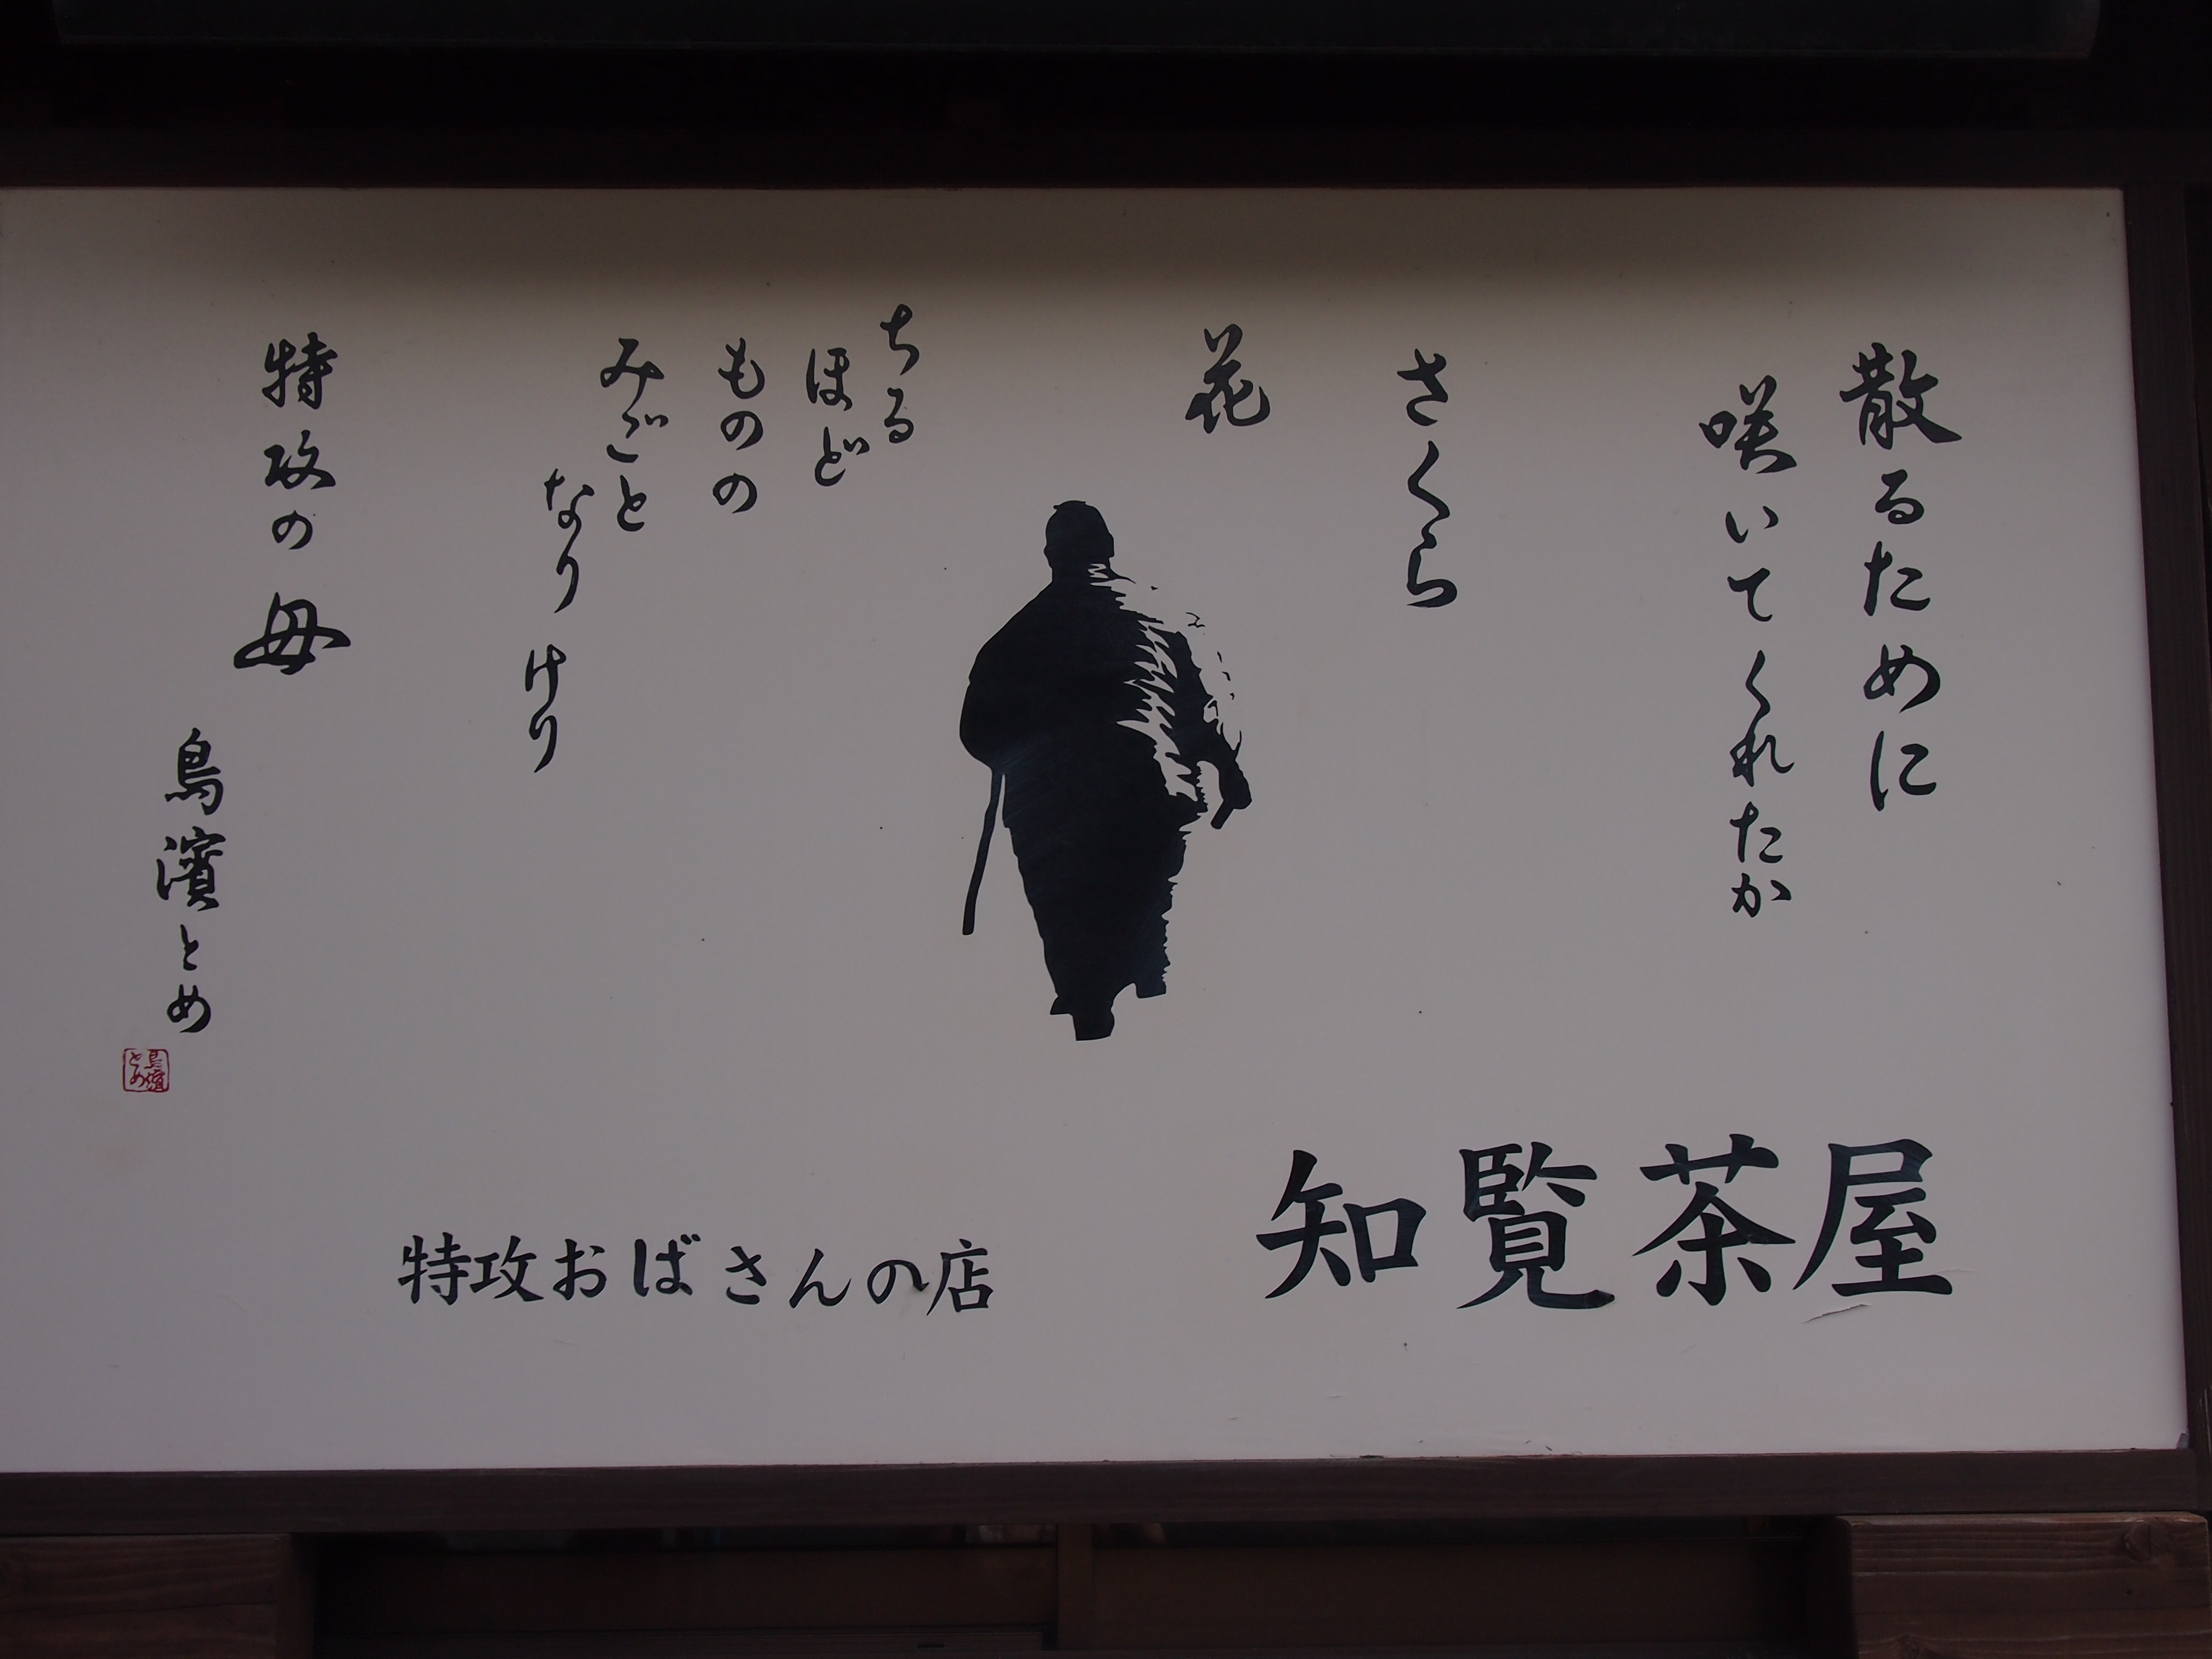 散るために
咲いてくれたか
さくら
花
ちる
ほど
ものの
みごと
なり
けり
特攻の母
鳥濱とめ
鳥濱
とめ
知覧茶屋
特攻おばさんの店